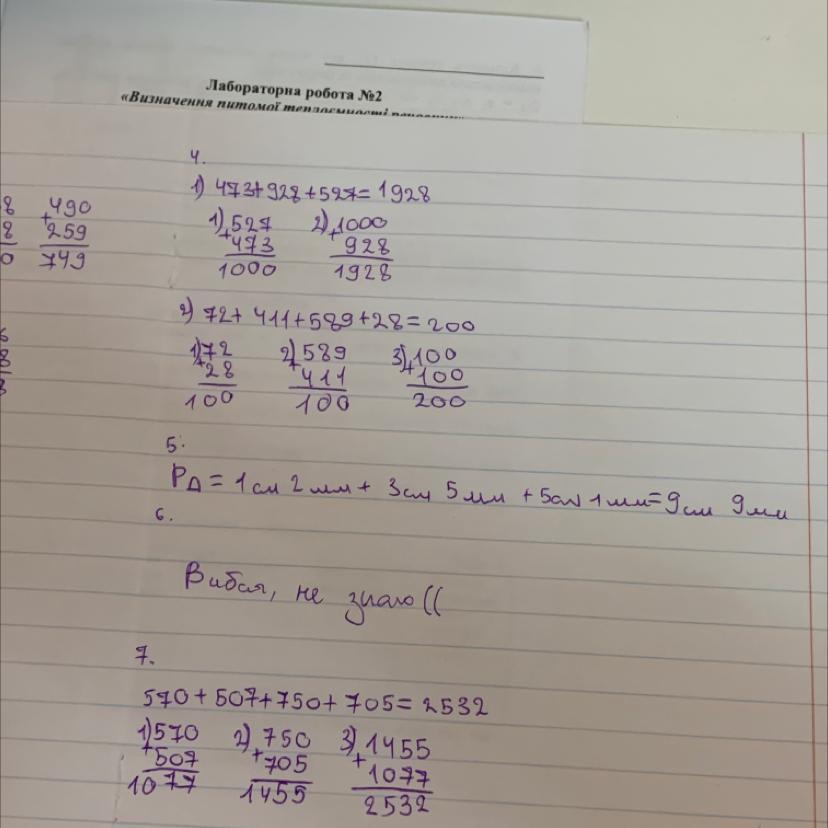 Лабораторна робота №2
«Визначення питомої теплоємності
4.
1) 473+928+527=1928
8 490
8 +259
0 749
1) 527 2) 1000
+473 +928
1000 1928
2) 72+411+589+28=200
1) 72 2) 589 3) 100
+28 +411 +100
100 100 200
8
5.
P∆=1см 2мм+3см 5мм+5см 1мм=9см 9мм
6.
Вибач, не знаю((
7.
570+507+750+705=2532
1) 570 2) 750 3) 1455
+507 +705 +1077
1077 1455 2532